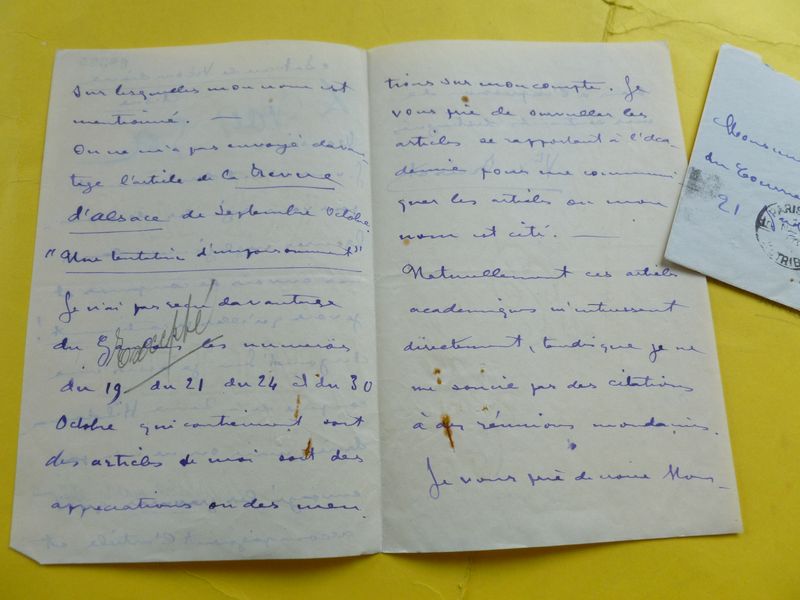 sur lesquelles mon nom est
mentionné. —
On ne m'a pas envoyé davan
tage l'article de la Revue
d'Alsace de Septembre Octobre.
"Une tentative d'empoisonnement"
Je n'ai pas reçu davantage
du Gaulois les numéros
Excepté
du 19 du 21 du 24 et du 30
Octobre qui contiennent soit
des articles de moi soit des
appreciations ou des men.
tions sur mon compte. Je
vous prie de surveiller les
articles se rapportant à l'Aca
démie pour me communi
quer les articles ou mon
nom est cité. —
Naturellement ces articles
academiques m'interessent
directement, tandis que je ne
me soucie pas des citations
à des réunions mondaines.
Je vous prie de croire Mons_
Monsieur
du
21
PARIS
TRIB